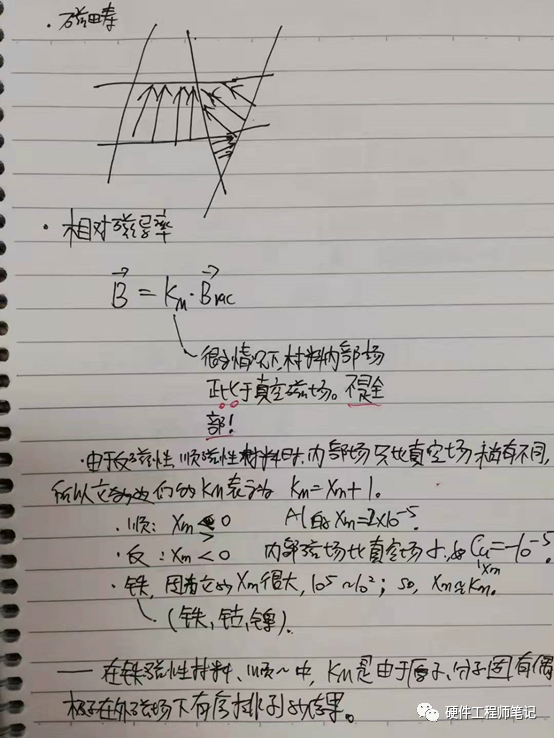 · 磁畴
· 相对磁导率
B = Km · Bvac
很多情况下,材料内部场
正比于真空磁场。不是全
部!
· 由于反磁性、顺磁性材料时,内部场只比真空场稍有不同,
所以它们的Km表示为 Km = Xm + 1。
· 顺: Xm > 0 Al的Xm=2×10⁻⁵.
· 反: Xm < 0 内部磁场比真空场小,如Cu=-10⁻⁵.
Xm
· 铁, 因为它的Xm很大, 10⁵~10²; so, Xm≈Km.
(铁,钴,镍).
—— 在铁磁性材料、顺~中, Km是由于原子、分子固有偶
极子在外磁场下有序排列的结果。
硬件工程师笔记